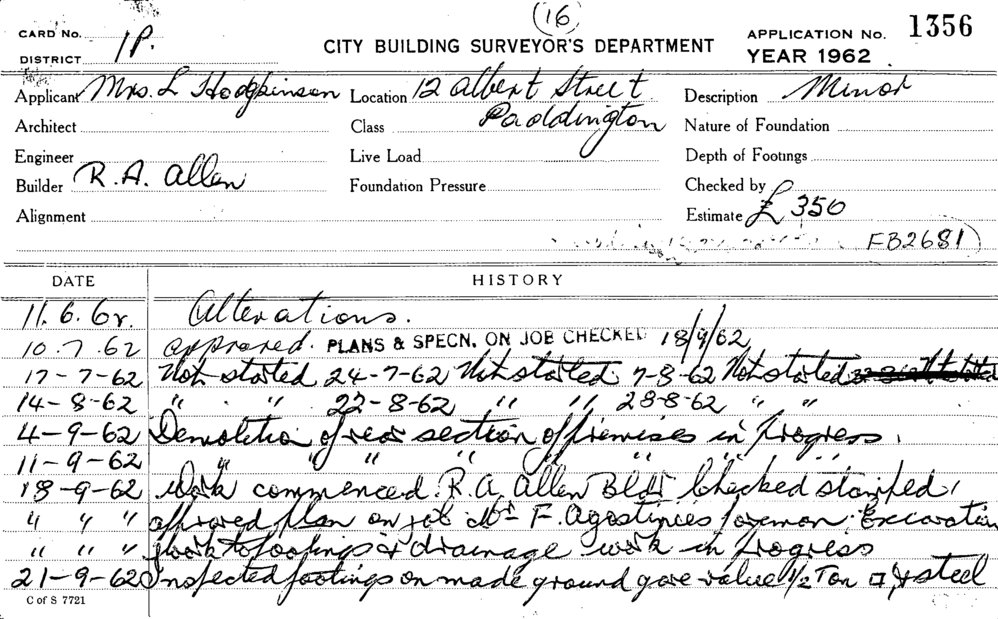 (16)
CARD No. 1P.
CITY BUILDING SURVEYOR'S DEPARTMENT
APPLICATION No. 1356
DISTRICT
YEAR 1962
Applicant Mrs. L Hodgkinson Location 12 Albert Street Description Minor
Paddington
Architect Class Nature of Foundation
Engineer Live Load Depth of Footings
Builder R.A. Allen Foundation Pressure Checked by
Alignment Estimate £ 350
FB2681)
DATE HISTORY
11.6.62. Alterations.
10.7.62 approved. PLANS & SPECN. ON JOB CHECKED 18/9/62
17-7-62 Not started 24-7-62 Not started 7-8-62 Not started
14-8-62 " " 22-8-62 " " 28-8-62 " "
4-9-62 Demolition of rear section of premises in progress.
11-9-62 " " " " " "
18-9-62 Work commenced. R.A. Allen Bldr Checked stamped,
" " " approved plan on job Mr F. Agostinies foreman. Excavation
" " " work to footings & drainage work in progress
21-9-62 Inspected footings on made ground gave value 1/2 Ton □ & steel
C of S 7721